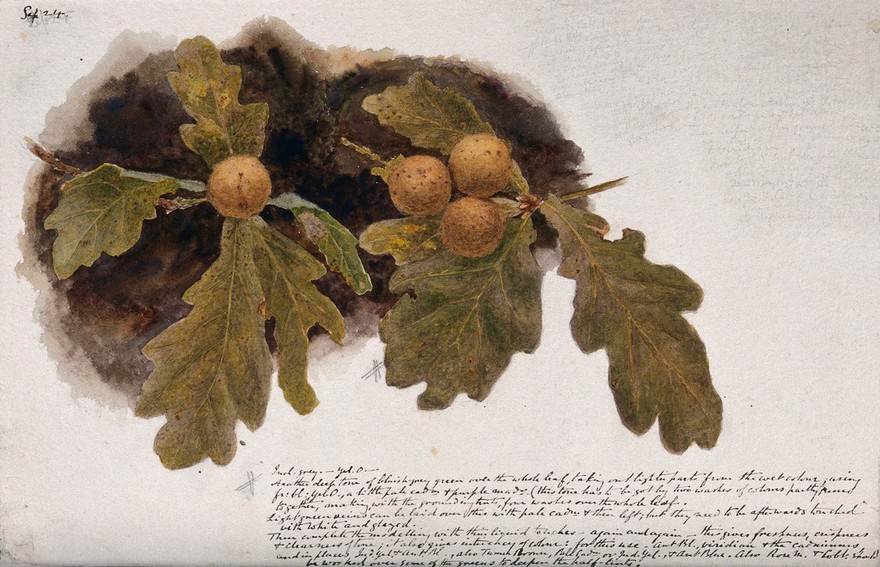 Sep 24.
Ind. grey. — Yel. O. —
Another deep tone of bluish grey green over the whole leaf, taking out lighter parts from the wet colour, using
fr: bl: Yel. O., a little pale cadm & purple mad: (this tone has to be got by two washes of colours partly mixed
together, making with the ground tints four washes over the whole leaf.
Light green veins can be laid over this with pale cadm & then left; but they need to be afterwards touched
with white and glazed.
Then complete the modelling with thin liquid touches — again and again — this gives freshness, crispness
& clearness of tone, it also gives intricacy of colour: for this use, Ant. Bl. viridian & the cadmiums
and in places Ind. Yel & Ant. Bl., also Turner Brown, Pale Cadm. or Ind. Yel. & Ant Blue. Also Rose M. & Cobt.
be worked over some of the greens to deepen the half-tints.